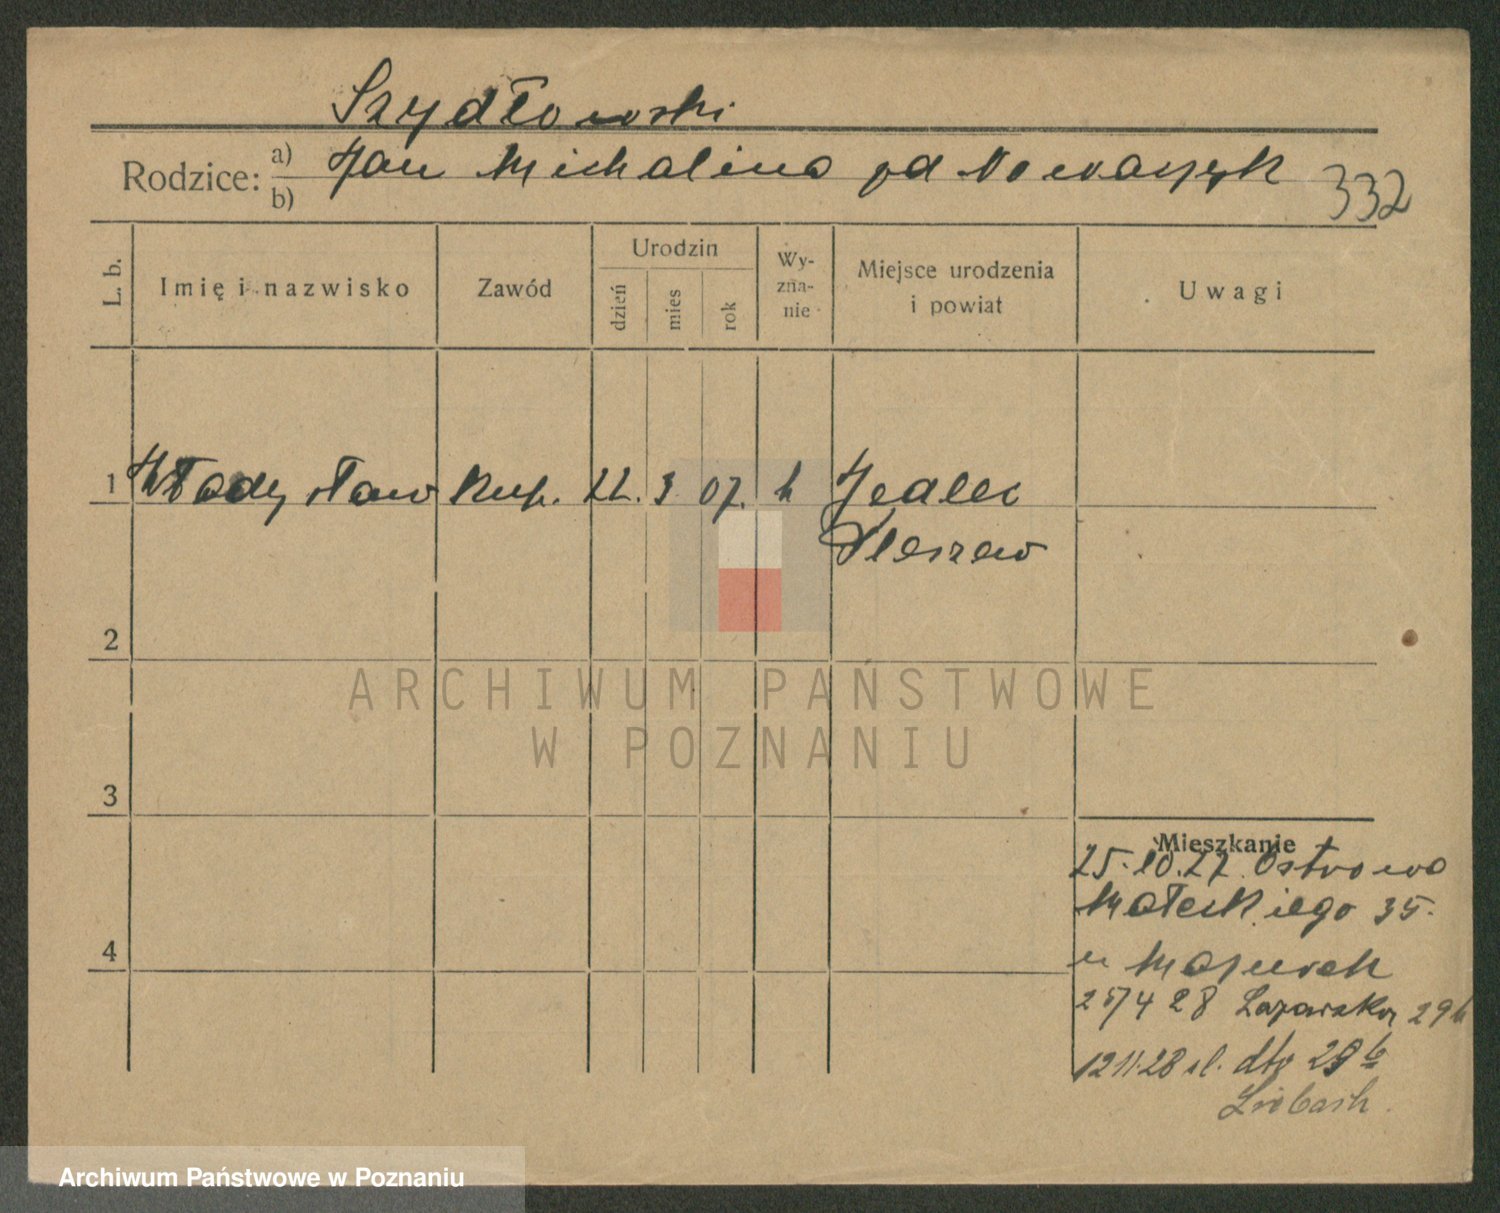 Szydłowski
Rodzice: a) Jan Michalina zd Nowaczyk 332
b)
L. b. Imię i nazwisko Zawód Urodzin dzień mies rok Wyznanie Miejsce urodzenia i powiat Uwagi
1 Władysław kup. 22. 3 07. k Jedlec
Pleszew
2
ARCHIWUM PAŃSTWOWE
W POZNANIU
3
Mieszkanie
25.10.27. Ostrowo
Małeckiego 35.
u Mazurek
25/4 28 Łazarska 29b
4
12 11. 28 dto 29 b
Archiwum Państwowe w Poznaniu